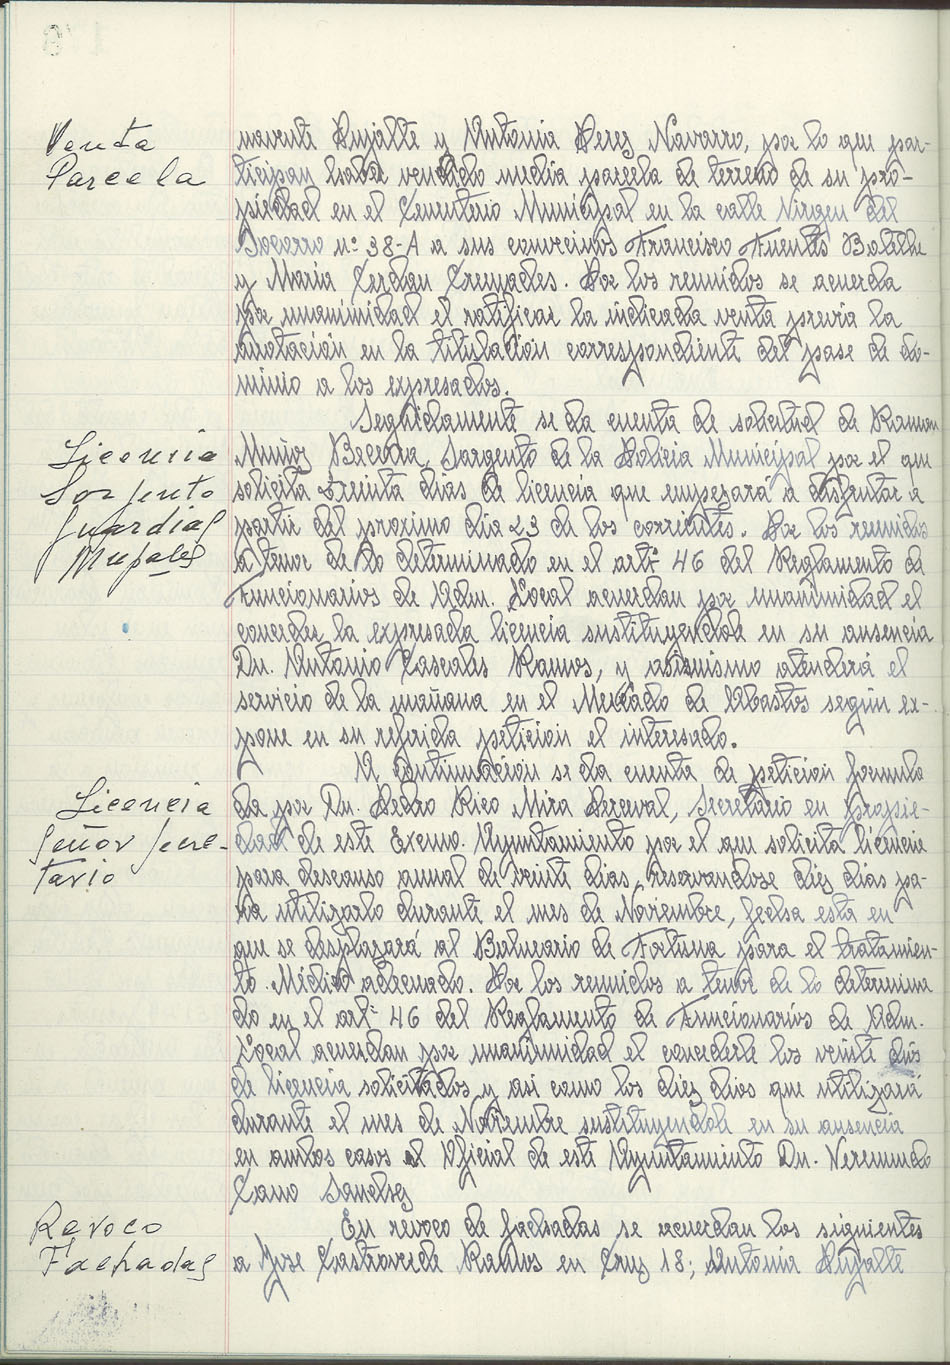 Venta
Parcela
navente Pujalte y Antonia Perez Navarro, por lo que par-
ticipan haber vendido media parcela de terreno de su pro-
piedad en el Cementerio Municipal en la calle Virgen del
Socorro nº 38-A a sus convecinos Francisco Fuentes Botella
y Maria Cerdan Cremades. Por los reunidos se acuerda
por unanimidad el ratificar la indicada venta previa la
anotación en la titulación correspondiente del pase de do-
minio a los expresados.
Licencia
Sargento
Guardias
Mupales
Seguidamente se da cuenta de solicitud de Ramon
Muñoz Becerra, Sargento de la Policia Municipal por el que
solicita treinta dias de licencia que empezará a disfrutar a
partir del proximo dia 23 de los corrientes. Por los reunidos
a tenor de lo determinado en el artº 46 del Reglamento de
Funcionarios de Adm. Local acuerdan por unanimidad el
conceder la expresada licencia sustituyendole en su ausencia
Dn. Antonio Cascales Ramos, y asimismo atenderá el
servicio de la mañana en el Mercado de Abastos según ex-
pone en su referida peticion el interesado.
Licencia
Señor Secre-
tario
A continuación se da cuenta de peticion formula
da por Dn. Pedro Rico Mira Perceval, Secretario en propie-
dad de este Excmo. Ayuntamiento por el que solicita licencia
para descanso anual de veinte dias, reservandose diez dias pa-
ra utilizarlo durante el mes de Noviembre, fecha esta en
que se desplazará al Balneario de Fortuna para el tratamien-
to Médico adecuado. Por los reunidos a tenor de lo determina
do en el artº 46 del Reglamento de Funcionarios de Adm.
Local acuerdan por unanimidad el concederle los veinte dias
de licencia solicitados y asi como los diez dias que utilizará
durante el mes de Noviembre sustituyendole en su ausencia
en ambos casos el Oficial de este Ayuntamiento Dn. Veremundo
Cano Sanchez
Revoco
Fachadas
En revoco de fachadas se acuerdan los siguientes
a Jose Castroverde Ramos en Cruz 18; Antonia Pujalte